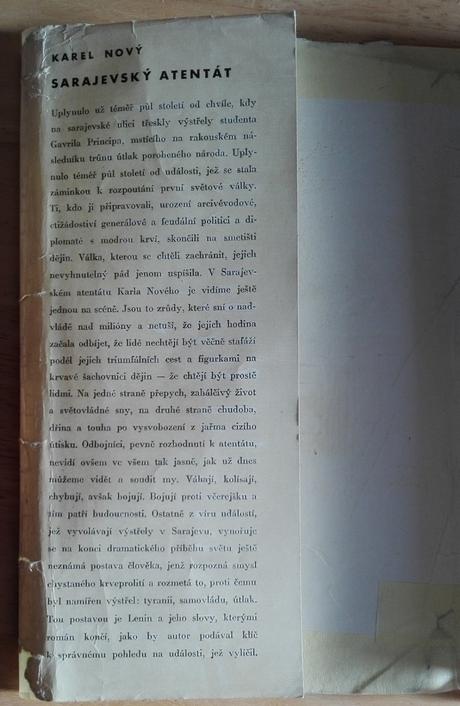 KAREL NOVÝ
SARAJEVSKÝ ATENTÁT
Uplynulo už téměř půl století od chvíle, kdy
na sarajevské ulici třeskly výstřely studenta
Gavrila Principa, mstícího na rakouském ná-
sledníku trůnu útlak porobeného národa. Uply-
nulo téměř půl století od události, jež se stala
záminkou k rozpoutání první světové války.
Ti, kdo ji připravovali, urození arcivévodové,
ctižádostiví generálové a feudální politici a di-
plomaté s modrou krví, skončili na smetišti
dějin. Válka, kterou se chtěli zachránit, jejich
nevyhnutelný pád jenom uspíšila. V Sarajev-
ském atentátu Karla Nového je vidíme ještě
jednou na scéně. Jsou to zrůdy, které sní o nad-
vládě nad milióny a netuší, že jejich hodina
začala odbíjet, že lidé nechtějí být věčně stafáží
podél jejich triumfálních cest a figurkami na
krvavé šachovnici dějin — že chtějí být prostě
lidmi. Na jedné straně přepych, zahálčivý život
a světovládné sny, na druhé straně chudoba,
dřina a touha po vysvobození z jařma cizího
útisku. Odbojníci, pevně rozhodnutí k atentátu,
nevidí ovšem ve všem tak jasně, jak už dnes
můžeme vidět a soudit my. Váhají, kolísají,
chybují, avšak bojují. Bojují proti včerejšku a
tím patří budoucnosti. Ostatně z víru událostí,
jež vyvolávají výstřely v Sarajevu, vynořuje
se na konci dramatického příběhu světu ještě
neznámá postava člověka, jenž rozpozná smysl
chystaného krveprolití a rozmetá to, proti čemu
byl namířen výstřel: tyranii, samovládu, útlak.
Tou postavou je Lenin a jeho slovy, kterými
román končí, jako by autor podával klíč
k správnému pohledu na události, jež vylíčil.